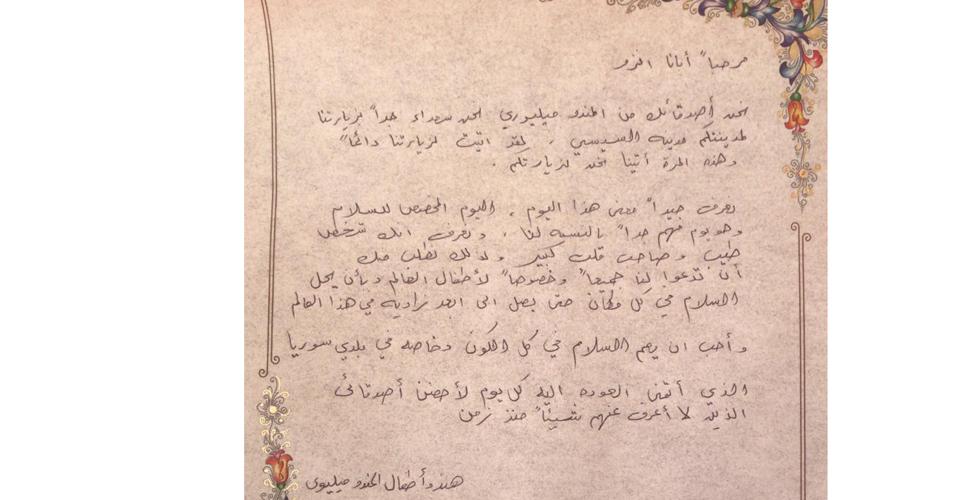 مرحباً أبانا افزو
نحن أصدقائك من الهندو ميليوري نحن سعداء جداً لزيارتنا
لمدينتكم مدينة السيسي . لقد اتيت لزيارتنا دائماً
وهذه المرة أتينا نحن لزيارتكم .
نعرف جيداً معنى هذا اليوم ، اليوم المخصص للسلام
وهو يوم مهم جداً بالنسبه لنا ، ونعرف انك شخص
طيب وصاحب قلب كبير ولذلك نطلب منك
أن تدعوا لنا جميعاً وخصوصاً لأطفال العالم وبأن يحل
السلام في كل مكان حتى يصل الى ابعد زاويه في هذا العالم
وأحب ان يعم السلام في كل الكون وخاصه في بلدي سوريا
الذي أتمنى العوده اليه كل يوم لأحضن أصدقائي
الذين لا أعرف عنهم شيئاً منذ زمن
هند وأطفال الهندو ميليوري